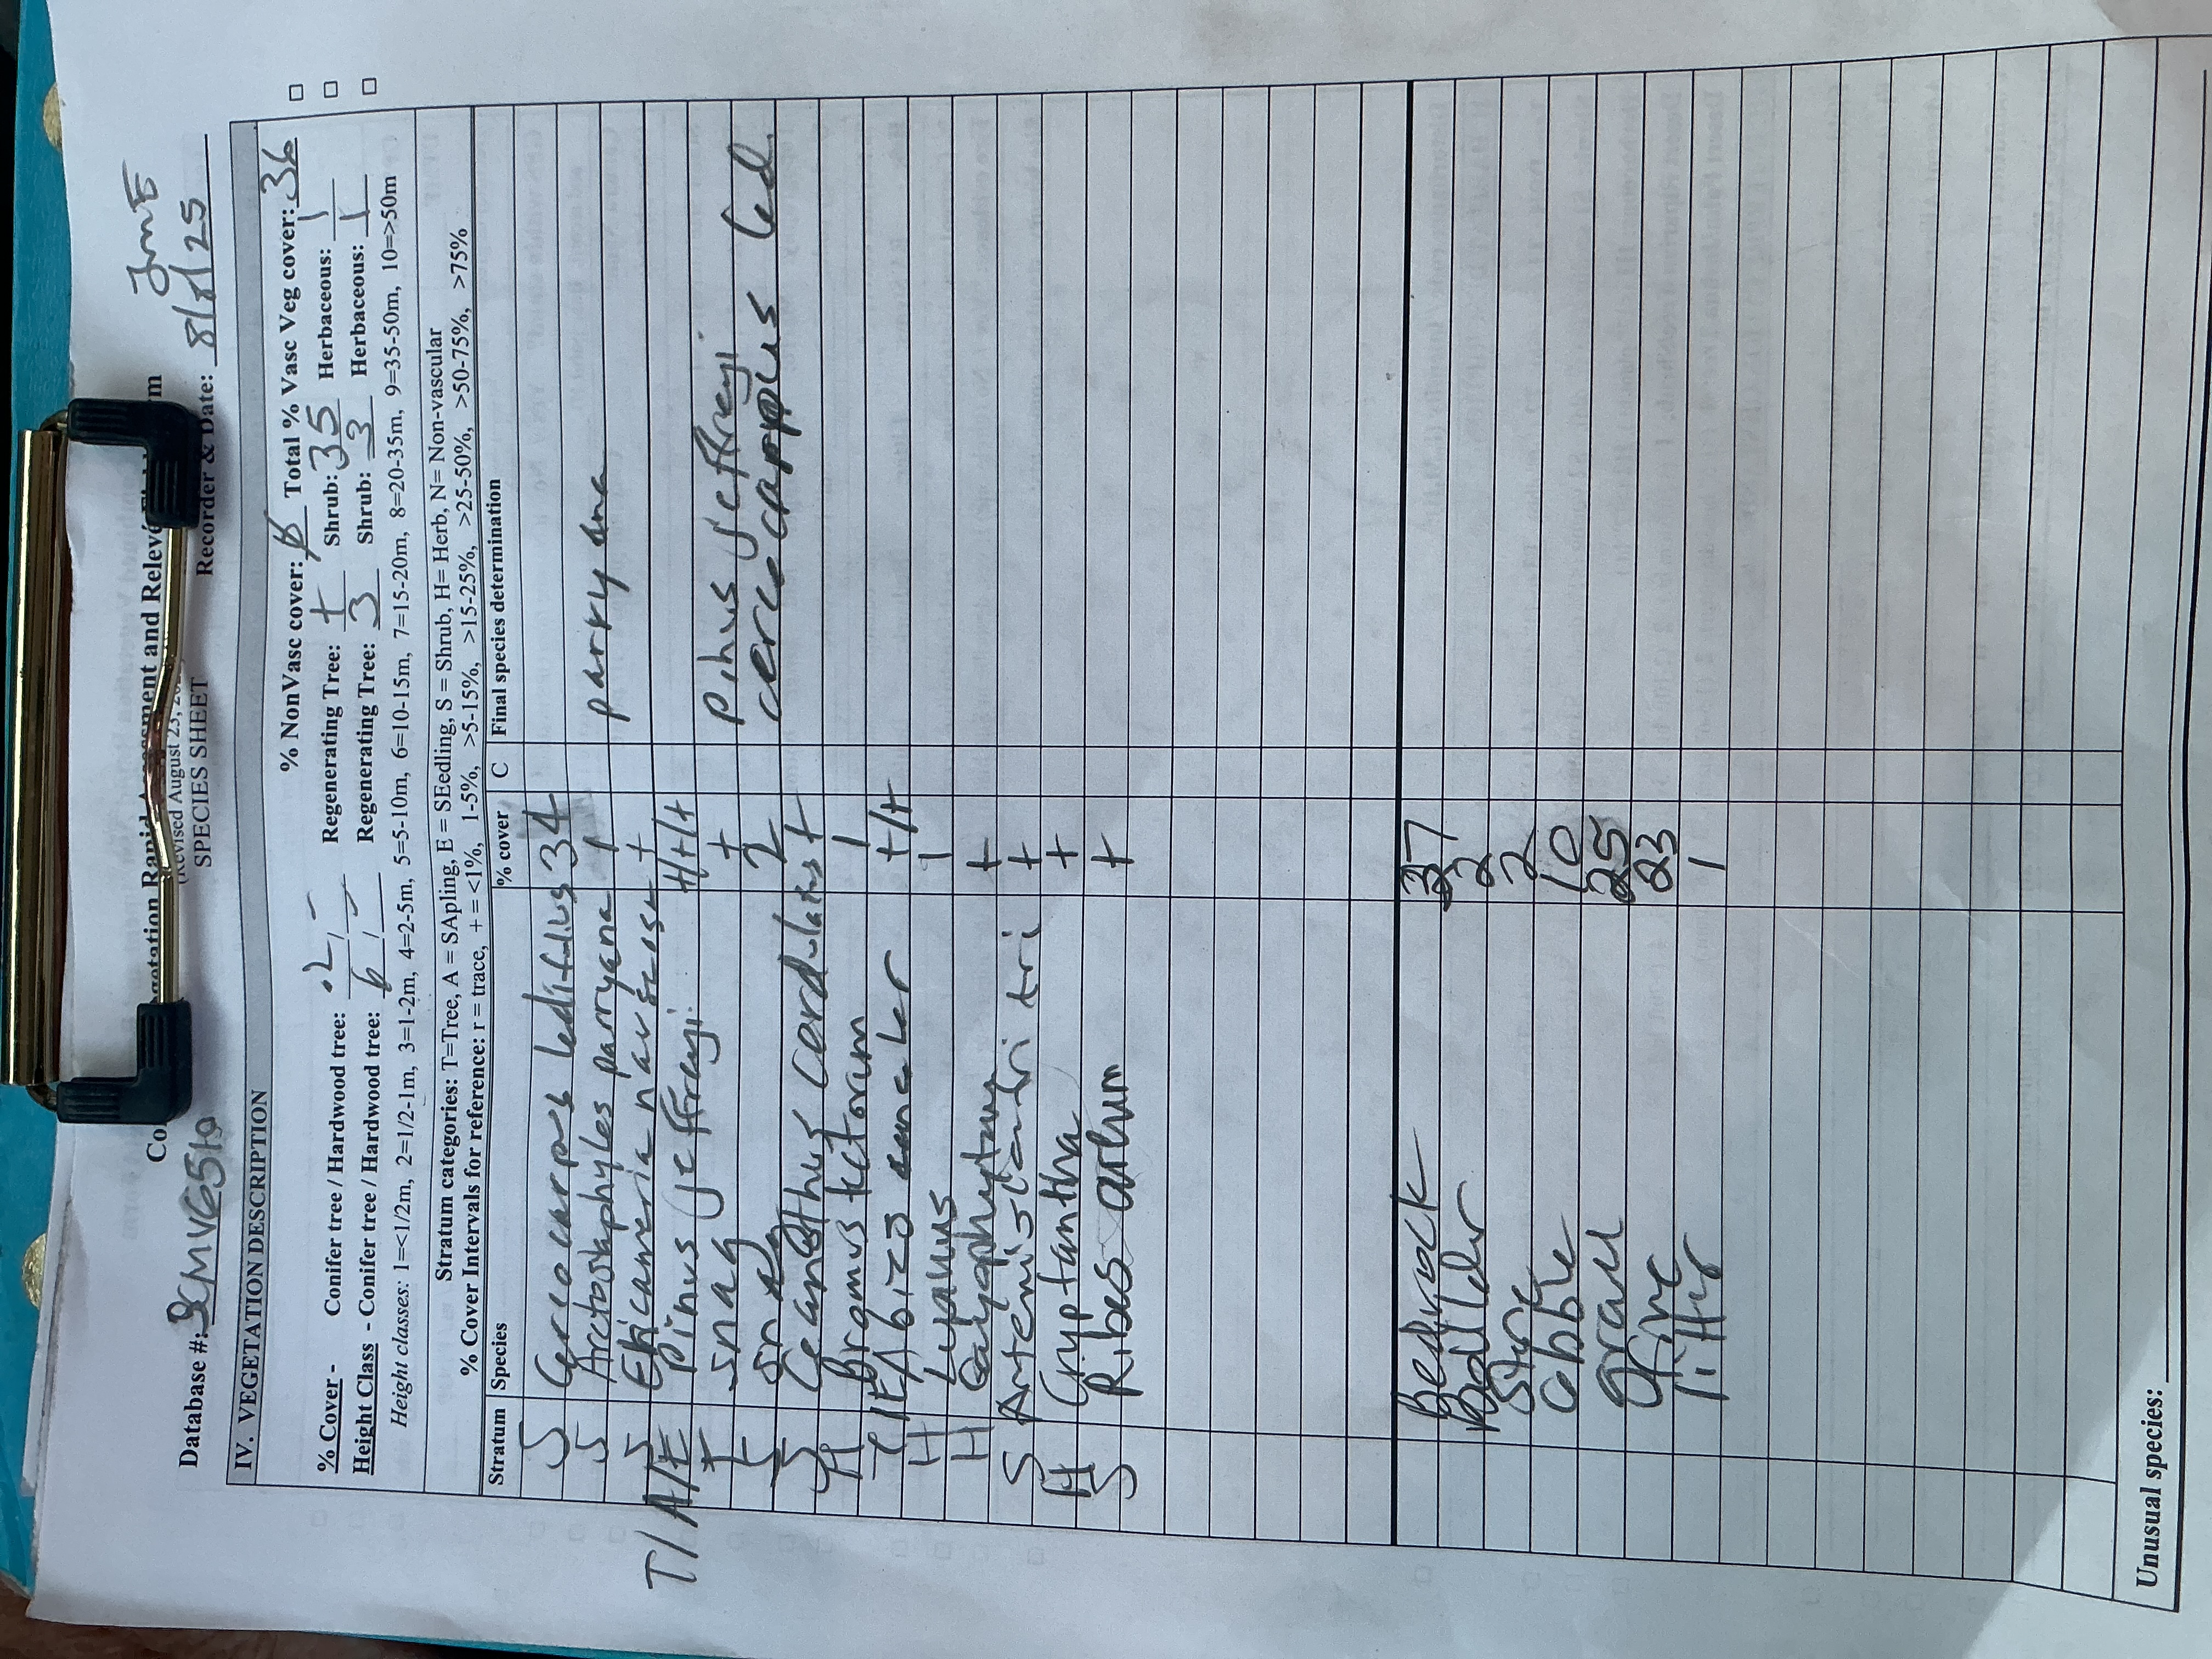 JmE
Vegetation Rapid Assessment and Relevé
(Revised August 23,
Database #: SPECIES SHEET Recorder & Date: 8/1/25
IV. VEGETATION DESCRIPTION
% NonVasc cover: Total % Vasc Veg cover: 36
% Cover - Conifer tree / Hardwood tree: .2/- Regenerating Tree: + Shrub: 35 Herbaceous: 1
Height Class - Conifer tree / Hardwood tree: 6/- Regenerating Tree: 3 Shrub: 3 Herbaceous: 1
Height classes: 1=<1/2m, 2=1/2-1m, 3=1-2m, 4=2-5m, 5=5-10m, 6=10-15m, 7=15-20m, 8=20-35m, 9=35-50m, 10=>50m
Stratum categories: T=Tree, A = SApling, E = SEedling, S = Shrub, H= Herb, N= Non-vascular
% Cover Intervals for reference: r = trace, + = <1%, 1-5%, >5-15%, >15-25%, >25-50%, >50-75%, >75%
Stratum Species % cover C Final species determination
S Cercocarpus ledifolius 34
S Arctostaphyles parryana 1 parryana
S Ericameria nauseosa +
T/A/E Pinus jeffreyi +/+/+
T snag + Pinus jeffreyi
S 2 cercocarpus led
S Ceanothus cordulatus +
H Bromus tectorum 1
Abizo +/+
H Lupinus 1
H +
S Artemisia tri +
H Cryptantha +
S Ribes +
Bedrock 37
Boulder 2
Stone 2
Cobble 10
Gravel 25
Fine 23
litter 1
Unusual species: